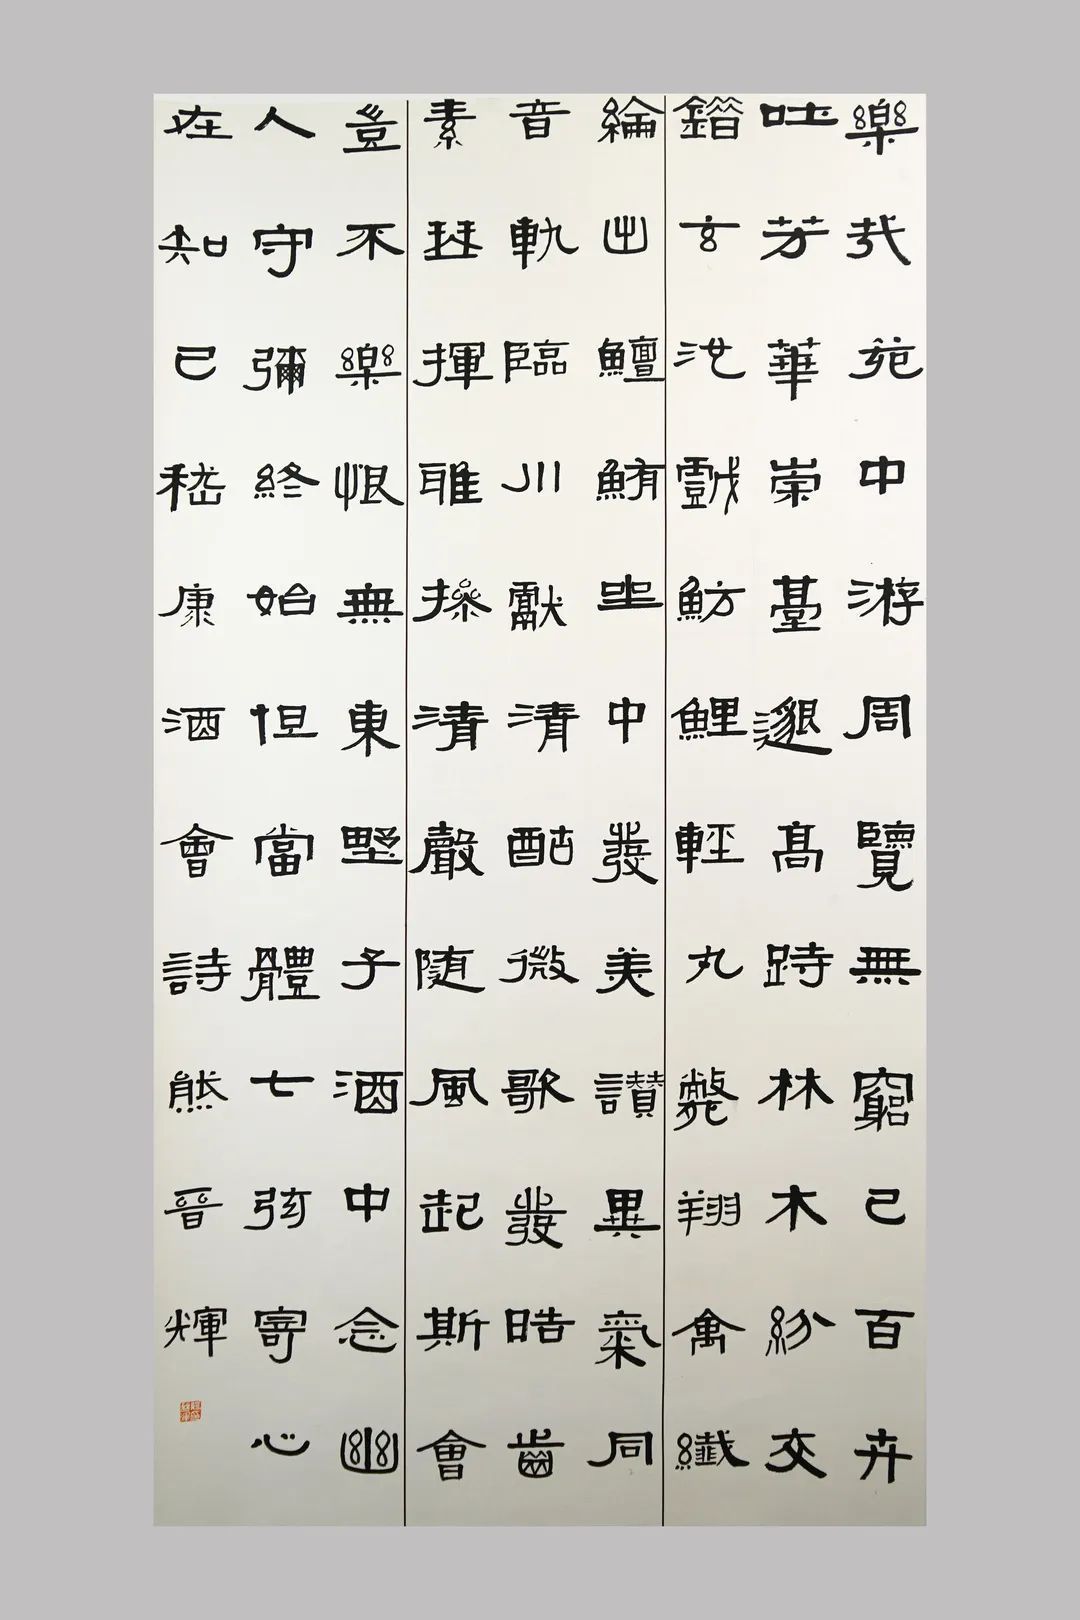 樂哉苑中游周覽無窮已百卉
吐芳華崇臺邈髙跱林木紛交
錯玄池戲魴鯉輕丸斃翔禽纖
綸出鱣鮪坐中發美讃異氣同
音軌臨川獻清酤微歌發皓齒
素琴揮雅操清聲随風起斯會
豈不樂恨無東野子酒中念幽
人守彌終始但當體七弦寄心
在知己嵇康酒會詩熊晉輝